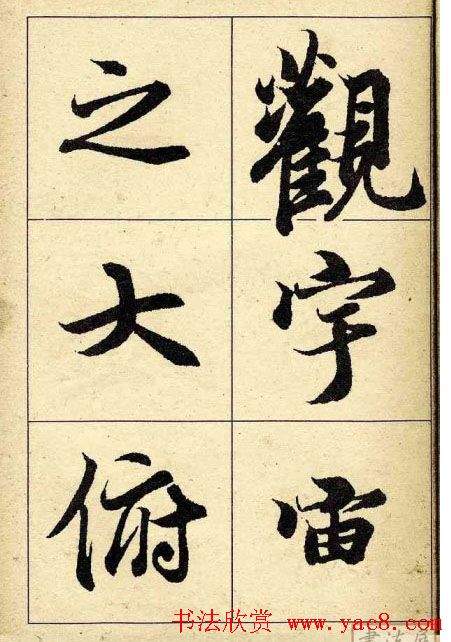 觀宇宙
之大俯
书法欣赏 www.yac8.com